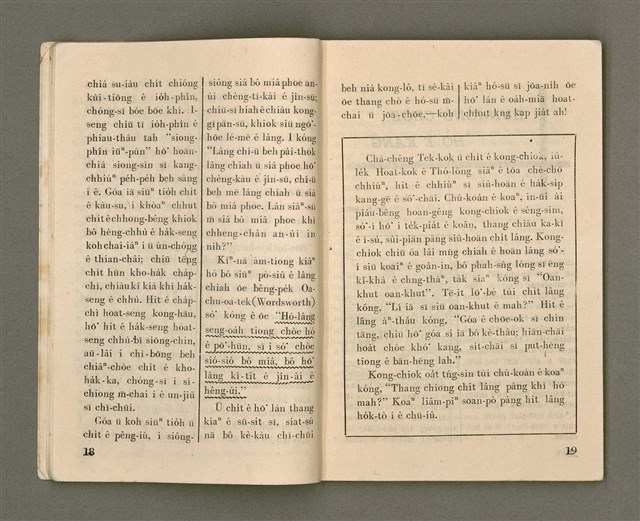 chiá su-iàu chit chióng
kùi-tiông ê ióh-phín,
chóng-sī bōe bōe khì. I-
seng chiū tī ióh-phín ê
phiau-thâu tah "siong-
phín iūⁿ-pún" hō͘ hoān-
chiá siong-sìn sī kang-
chhiúⁿ péh-péh beh sàng
i ê. Góa iā siūⁿ tióh chit
ê kàu-su, i khòaⁿ chhut
chit ê chhong-bêng khiok
bô hêng-chhú ê hák-seng
koh chai-iáⁿ i ū ún-chông
ê thian-châi; chiū têng-
chit hūn kho-hák cháp-
chì, chiàu kî kià khì hák-
seng ê chhù. Hit ê cháp-
chì hoat-seng kong-hāu,
hō͘ hit ê hák-seng hoat-
seng chhù-bī siōng-chìn,
āu-lâi i chì-bōng beh
chiâⁿ-chòe chit ê kho-
hák-ka, chóng-sī i sì-
chiong m̄-chai i ê un-jiû
sī chī-chūi.
Góa ū koh siūⁿ tióh ū
chit ê pêng-iú, i siông-
siông siá bô miâ phoe an-
ùi chèng-ti-kài ê jîn-sū;
chiū-sī hiah ê chiàu kong-
gī pān-sū, khiok siū ngō͘-
hōe lé-mē ê lâng. I kóng
"Lâng chí-ū beh pài-thok
lâng chiah ū siá phoe hō͘
chèng-kàu ê jîn-sū, chí-ū
beh mē lâng chiah ū siá
bô miâ phoe. Lán siáⁿ-sū
m̄ siá bô miâ phoe khì
chheng-chán an-ùi in
nih?"
Kiⁿ-nā àm-tiong kiâⁿ
hó bô siūⁿ pò-siû ê lâng
chiah ōe bêng-pék Oa-
chu-oa-tek (Wordsworth)
só͘ kóng ê ōe "Hó-lâng
seng-oáh tiong chòe hó
ê pō͘-hūn, sī i só͘ chòe
sió-sió bô miâ, bô hō͘
lâng kì-tit ê jîn-ài ê
hêng-ûi."
Ū chit ê hō͘ lán thang
kiaⁿ ê sū-sit sī, siat-sú
nā bô kè-kàu chī-chūi
18
beh niá kong-lô, tī sè-kài
ōe thang chò ê hó-sū m̄-
chai ū jōa-chōe,—koh
kiâⁿ hó-sū sī jōa-nih ōe
hō͘ lán ê oáh-miā hoat-
chhut kng kap jiát ah!
Chá-chêng Tek-kok ū chit ê kong-chiok, iû-
lék Hoat-kok ê Thó͘-lông siâⁿ ê tōa chè-chō
chhiúⁿ, hit ê chhiúⁿ sī siū-hoān ê hák-síp
kang-gē ê só͘-chāi. Chú-koán ê koaⁿ, in-ūi ài
piáu-bêng hoan-gêng kong-chiok ê sêng-sim,
só͘-í hō͘ i ték-piát ê koân, thang chiàu ka-kī
ê ì-sù, sûi-piān pàng siū-hoān chit lâng. Kong-
chiok chiū óa lâi mn̄g chiah ê hoān lâng só͘-
í siū koaiⁿ ê goân-in, bô phah-sǹg lóng sī èng
kî-khá ê chng-thāⁿ, ták siáⁿ kóng sī "Oan-
khut oan-khut". Tē-it lō͘-bé tùi chit lâng
kóng, "Lí iā sī siū oan-khut ê mah?" Hit ê
lâng âⁿ-thâu kóng, "Góa ê chōe-ok sī chin
tāng, chiū hō͘ góa sí iā bô kè-thâu; hiān-chāi
hoát chóe khó͘ kang, sit-chāi sī put-hēng
tiong ê bān-hēng lah."
Kong-chiok oát tńg-sin tùi chú-koán ê koaⁿ
kóng, "Thang chiong chit lâng pàng khì hō͘
mah?" Koaⁿ liâm-piⁿ soan-pò pàng hit lâng
hók-tò i ê chū-iû.
19